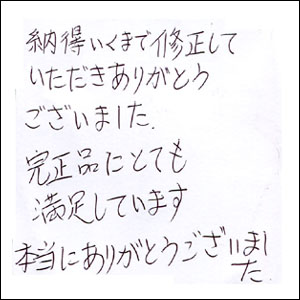 納得いくまで修正して
いただきありがとう
ございました.
完正品にとても
満足しています
本当にありがとうございまし
た.